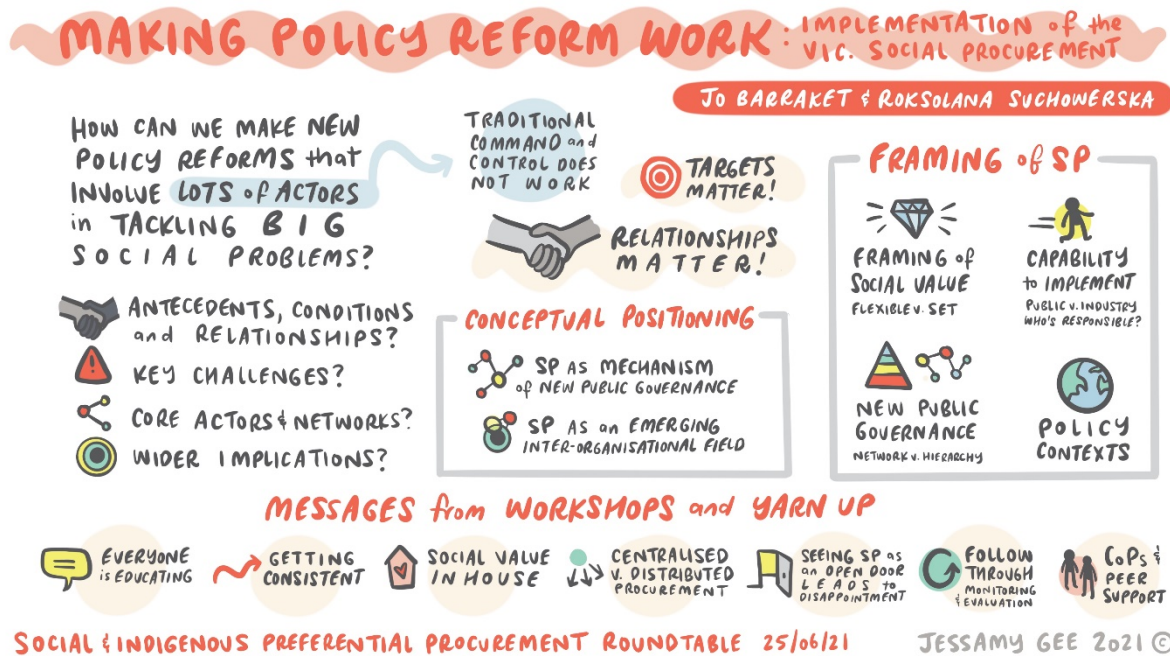 MAKING POLICY REFORM WORK: IMPLEMENTATION of the
VIC. SOCIAL PROCUREMENT
JO BARRAKET & ROKSOLANA SUCHOWERSKA
HOW CAN WE MAKE NEW
POLICY REFORMS that
INVOLVE LOTS of ACTORS
in TACKLING BIG
SOCIAL PROBLEMS?
ANTECEDENTS, CONDITIONS
and RELATIONSHIPS?
KEY CHALLENGES?
CORE ACTORS & NETWORKS?
WIDER IMPLICATIONS?
TRADITIONAL
COMMAND and
CONTROL DOES
NOT WORK
TARGETS
MATTER!
RELATIONSHIPS
MATTER!
CONCEPTUAL POSITIONING
SP AS MECHANISM
of NEW PUBLIC GOVERNANCE
SP AS an EMERGING
INTER-ORGANISATIONAL FIELD
FRAMING of SP
FRAMING of
SOCIAL VALUE
FLEXIBLE V. SET
CAPABILITY
to IMPLEMENT
PUBLIC V. INDUSTRY
WHO'S RESPONSIBLE?
NEW PUBLIC
GOVERNANCE
NETWORK V. HIERARCHY
POLICY
CONTEXTS
MESSAGES from WORKSHOPS and YARN UP
EVERYONE
is EDUCATING
GETTING
CONSISTENT
SOCIAL VALUE
IN HOUSE
CENTRALISED
V. DISTRIBUTED
PROCUREMENT
SEEING SP as
an OPEN DOOR
LEADS to
DISAPPOINTMENT
FOLLOW
THROUGH
MONITORING
& EVALUATION
COPs &
PEER
SUPPORT
SOCIAL & INDIGENOUS PREFERENTIAL PROCUREMENT ROUNDTABLE 25/06/21
JESSAMY GEE 2021 ©